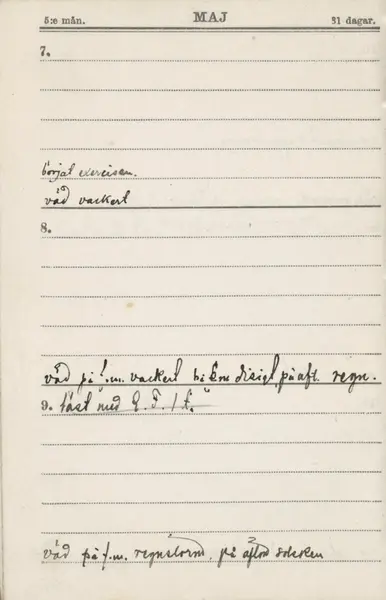 5:e mån. MAJ 31 dagar.
7.
börjat exercisen.
väd vackert
8.
väd på f.m. vackert disigt på aft. regn.
9. läst med
väd på f.m. regnstorm. på afton